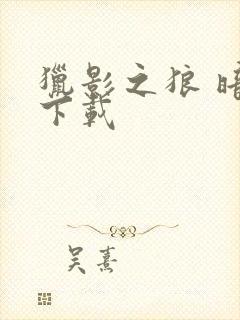 獵影之狼 暗
下載
吴熹